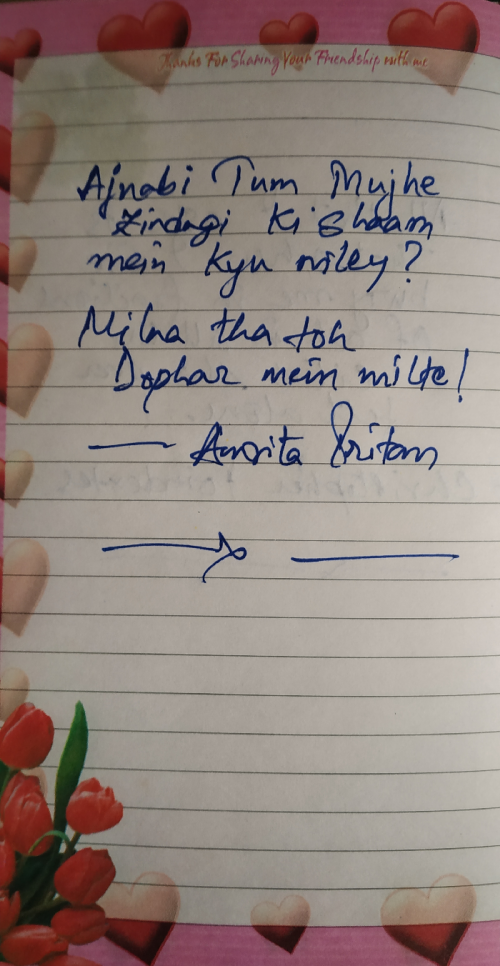 Thanks For Sharing Your Friendship with me
Ajnabi Tum Mujhe
Zindagi Ki Shaam
mein Kyu miley?
Milna tha toh
Dophar mein milte!
— Amrita Pritam